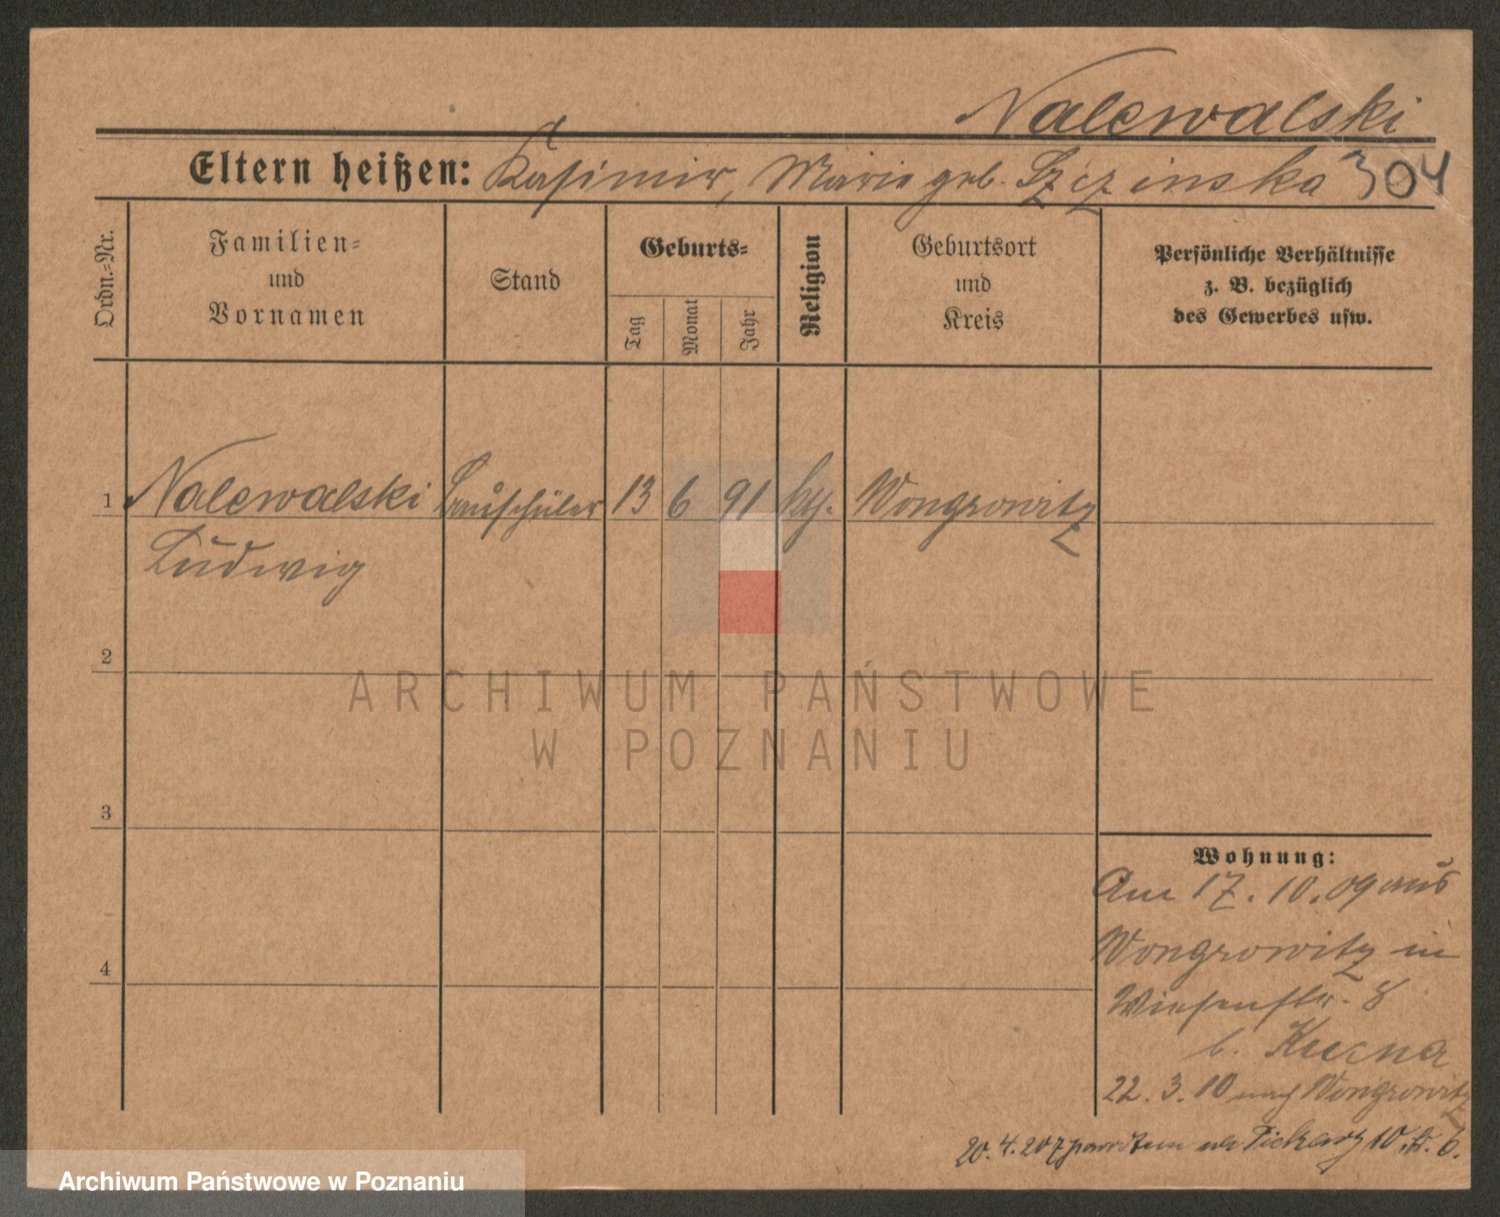 Nalewalski
304
Eltern heißen: Kasimir, Marie geb. Szczinska
Ordn.=Nr.
Familien=
und
Vornamen
Stand
Geburts=
Tag
Monat
Jahr
Religion
Geburtsort
und
Kreis
Persönliche Verhältnisse
z. B. bezüglich
des Gewerbes usw.
1 Nalewalski Bauschüler 13 6 91 kth. Wongrowitz
Ludwig
2
3
4
Wohnung:
Am 17. 10. 09 aus
Wongrowitz in
Wiesenstr. 8
b. Kucna
22. 3. 10 nach Wongrowitz
20. 4. 10 6.
ARCHIWUM PAŃSTWOWE
W POZNANIU
Archiwum Państwowe w Poznaniu